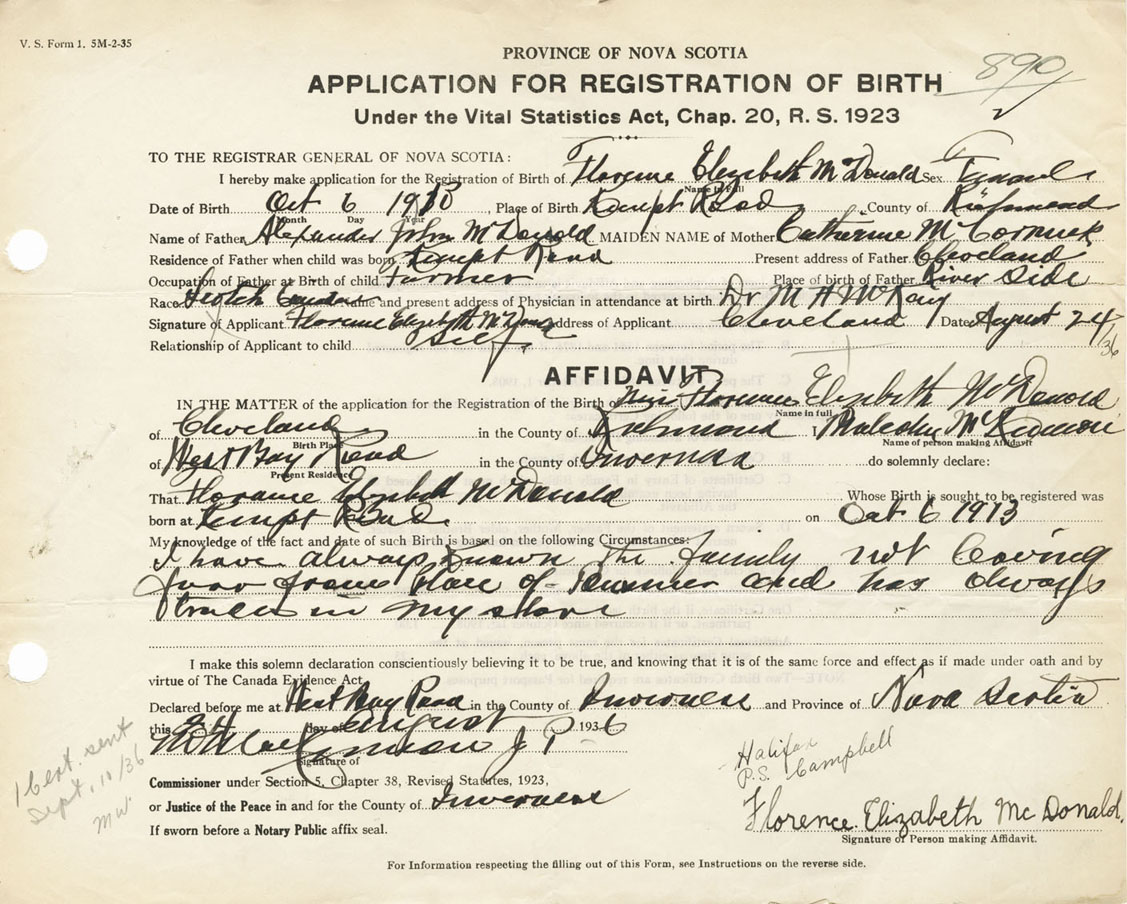 V. S. Form 1. 5M-2-35
PROVINCE OF NOVA SCOTIA
APPLICATION FOR REGISTRATION OF BIRTH
890
Under the Vital Statistics Act, Chap. 20, R. S. 1923
TO THE REGISTRAR GENERAL OF NOVA SCOTIA:
I hereby make application for the Registration of Birth of Florence Elizabeth McDonald Sex Female
Name in Full
Date of Birth Oct 6 19 , Place of Birth Kempt Road , County of Richmond
Month Day Year
Name of Father Alexander John McDonald MAIDEN NAME of Mother Catherine McCormick
Residence of Father when child was born Kempt Road Present address of Father Cleveland
Occupation of Father at Birth of child Farmer Place of birth of Father River Side
Race Scotch Name and present address of Physician in attendance at birth Dr M A McKay
Signature of Applicant Florence Elizabeth McDonald Address of Applicant Cleveland Date August 24/36
Relationship of Applicant to child Self
AFFIDAVIT
IN THE MATTER of the application for the Registration of the Birth of Miss Florence Elizabeth McDonald
Name in full
of Cleveland in the County of Richmond , Malcolm McKinnon
Birth Place Name of person making Affidavit
of West Bay Road in the County of Inverness do solemnly declare:
Present Residence
That Florence Elizabeth McDonald Whose Birth is sought to be registered was
born at Kempt Road on Oct 6 1913
My knowledge of the fact and date of such Birth is based on the following Circumstances:
I have always known the family not living
far from Place of and has always
in my store
I make this solemn declaration conscientiously believing it to be true, and knowing that it is of the same force and effect as if made under oath and by
virtue of The Canada Evidence Act.
Declared before me at West Bay Road in the County of Inverness and Province of Nova Scotia
this 24 day of August 1936
J P
Signature of
Commissioner under Section 5, Chapter 38, Revised Statutes, 1923,
or Justice of the Peace in and for the County of Inverness
If sworn before a Notary Public affix seal.
1 cert. sent
Sept. 10/36
MW
Halifax
P.S. Campbell
Florence Elizabeth McDonald.
Signature of Person making Affidavit.
For Information respecting the filling out of this Form, see Instructions on the reverse side.